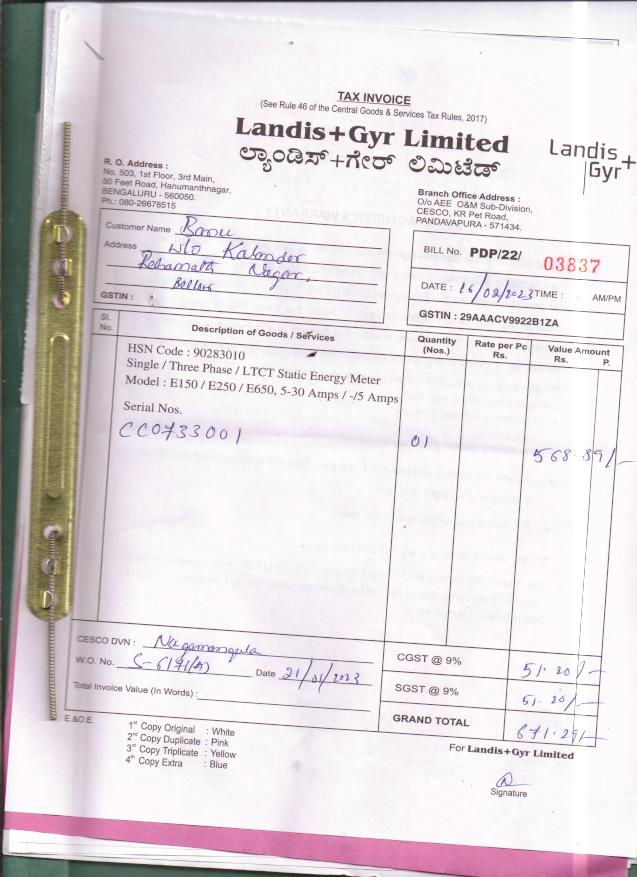 TAX INVOICE
(See Rule 46 of the Central Goods & Services Tax Rules, 2017)
Landis+Gyr Limited
ಲ್ಯಾಂಡಿಸ್+ಗೇರ್ ಲಿಮಿಟೆಡ್
Landis+
Gyr
R. O. Address :
No. 503, 1st Floor, 3rd Main,
50 Feet Road, Hanumanthnagar,
BENGALURU - 560050.
Ph.: 080-26678515
Branch Office Address :
O/o AEE O&M Sub-Division,
CESCO, KR Pet Road,
PANDAVAPURA - 571434.
Customer Name Banu
Address W/o Kalander
Rahamath Nagar,
Bellur
GSTIN :
BILL No. PDP/22/ 03837
DATE : 16/02/2023 TIME : AM/PM
GSTIN : 29AAACV9922B1ZA
Sl. No. Description of Goods / Services Quantity (Nos.) Rate per Pc Rs. Value Amount Rs. P.
HSN Code : 90283010
Single / Three Phase / LTCT Static Energy Meter
Model : E150 / E250 / E650, 5-30 Amps / -/5 Amps
Serial Nos.
CC0733001 01 568.89/-
CESCO DVN : Nagamangala
W.O. No. S-6171(A) Date 21/01/2023
Total Invoice Value (In Words) :
CGST @ 9% 51.20/-
SGST @ 9% 51.20/-
GRAND TOTAL 671.29/-
E.&O.E.
1st Copy Original : White
2nd Copy Duplicate : Pink
3rd Copy Triplicate : Yellow
4th Copy Extra : Blue
For Landis+Gyr Limited
Signature